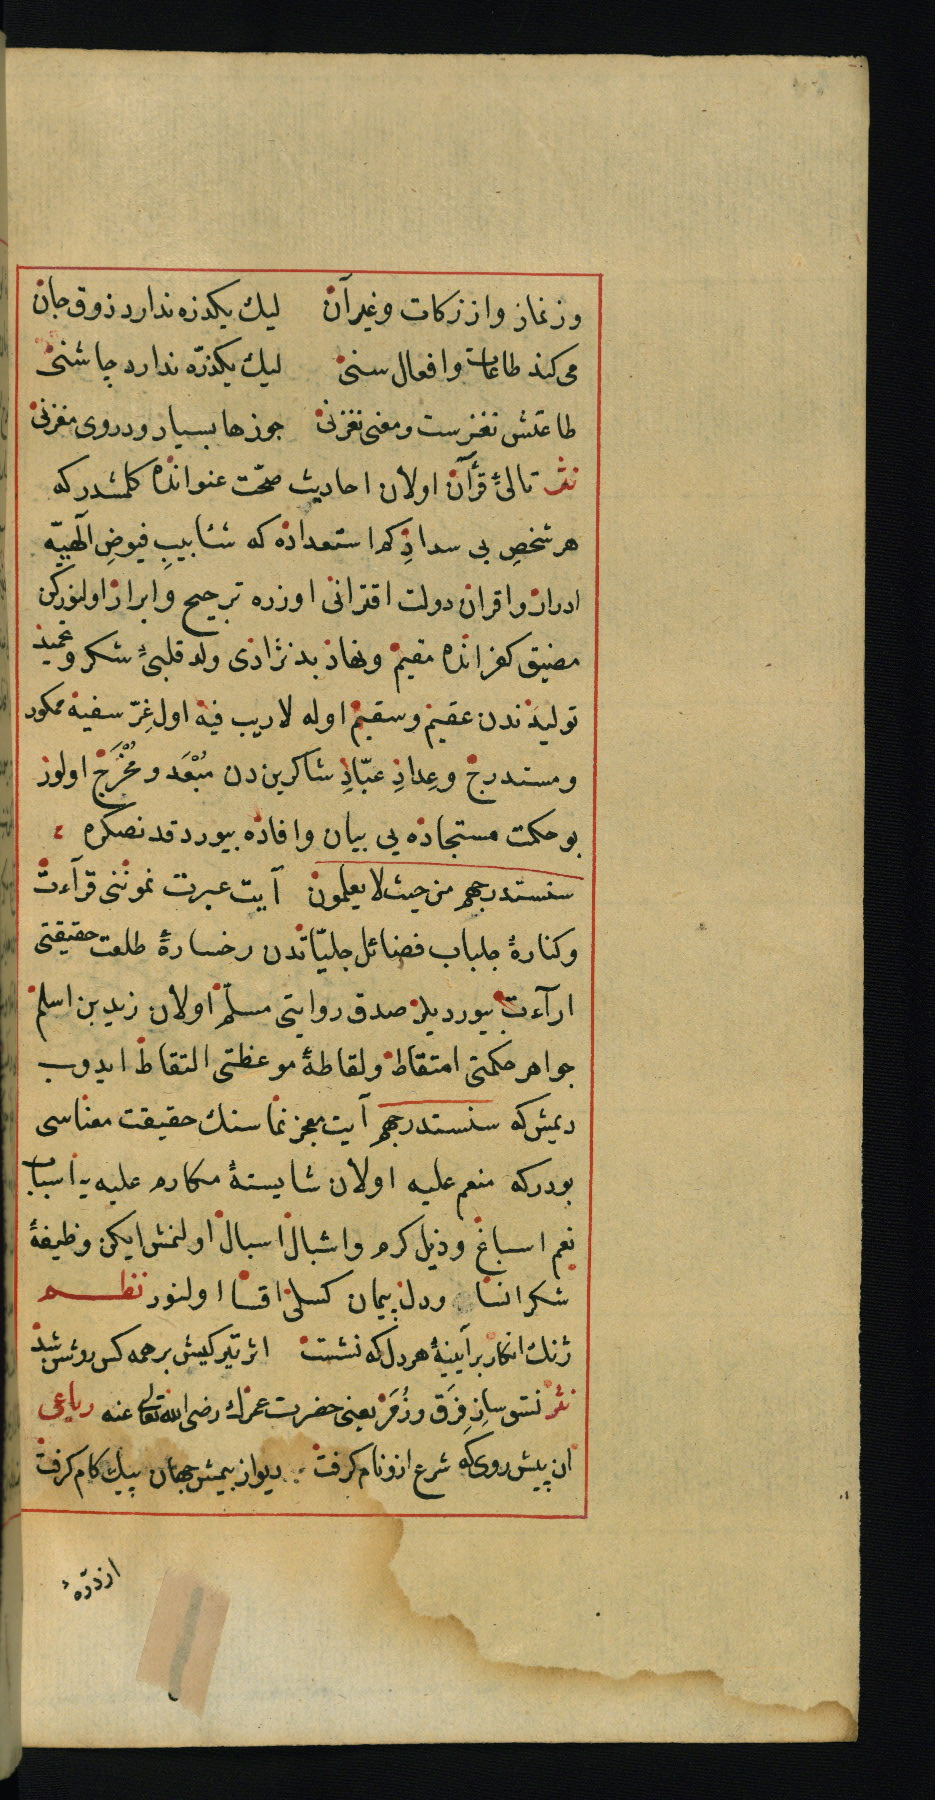 وز نماز و از زكات و غیر آن لیك یكذره ندارد ذوق جان
می كند طاعات و افعال سنی لیك یكذرّه ندارد چاشنی
طاعتش نغزست و معنی نغز نی جوزها بسیار و دروی مغز نی
نثر تالیٔ قرآن اولان احادیث صحّت عنوانده كلمشدر كه
هر شخصِ بی سدادِ كم استعداده كه شئابیبِ فیوضِ الٓهیّه
ادرار و اقران دولت اقترانی اوزره ترجیح و ابراز اولنوركن
مضیق كفرانده مقیم و نهاد بدنژادی ولد قلبیٔ شكر و تحمید
تولیدندن عقیم و سقیم اوله لاریب فیه اول غِرّ سفیه ممكور
و مستدرج و عِدادِ عبّادِ شاكرین دن مُبْعَد و مُخْرَج اولور
بو حكمت مستجاده یی بیان و افاده بیوردقدنصكره
سنستدرجهم من حیث لا یعلمون آیت عبرت نموننی قرآءت
و كنارهٔ جلباب فضائل جلیّاتدن رخسارهٔ طلعت حقیقتی
ارآءت بیوردیلر صدق روایتی مسلّم اولان زید بن اسلم
جواهر حكمتی امتقاط و لقاطهٔ موعظتی التقاط ایدوب
دیمش كه سنستدرجهم آیت معجز نماسنك حقیقت معناسی
بودركه منعم علیه اولان شایستهٔ مكارم علیه یه اسباب
نعم اسباغ و ذیل كرم و اشبال اسبال اولنمش ایكن وظیفهٔ
شكر انسا ودل پیمان كسلی اقسا اولنور نظم
ژنك انكار بر آیینهٔ هر دل كه نشست اثر تیركیش بر همه كس روشن شد
نثر نسق سازِ فِرَق و زُمَر یعنی حضرت عمرك رضی الله تعالی عنه رباعی
ان پیش روی كه شرع ازو نام كرفت دیوار بیمش جهان بیك كام كرفت
از ذرّهٔ